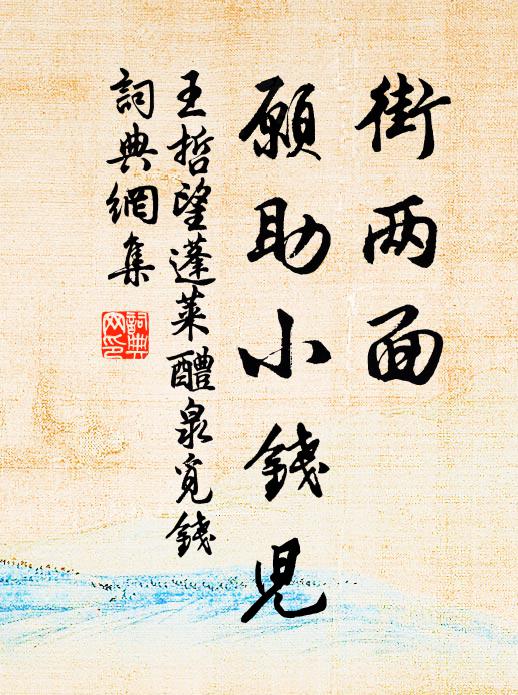 街两面
願助小錢児
王哲望蓬莱醴泉覓錢
詞典網集
詞典
网印